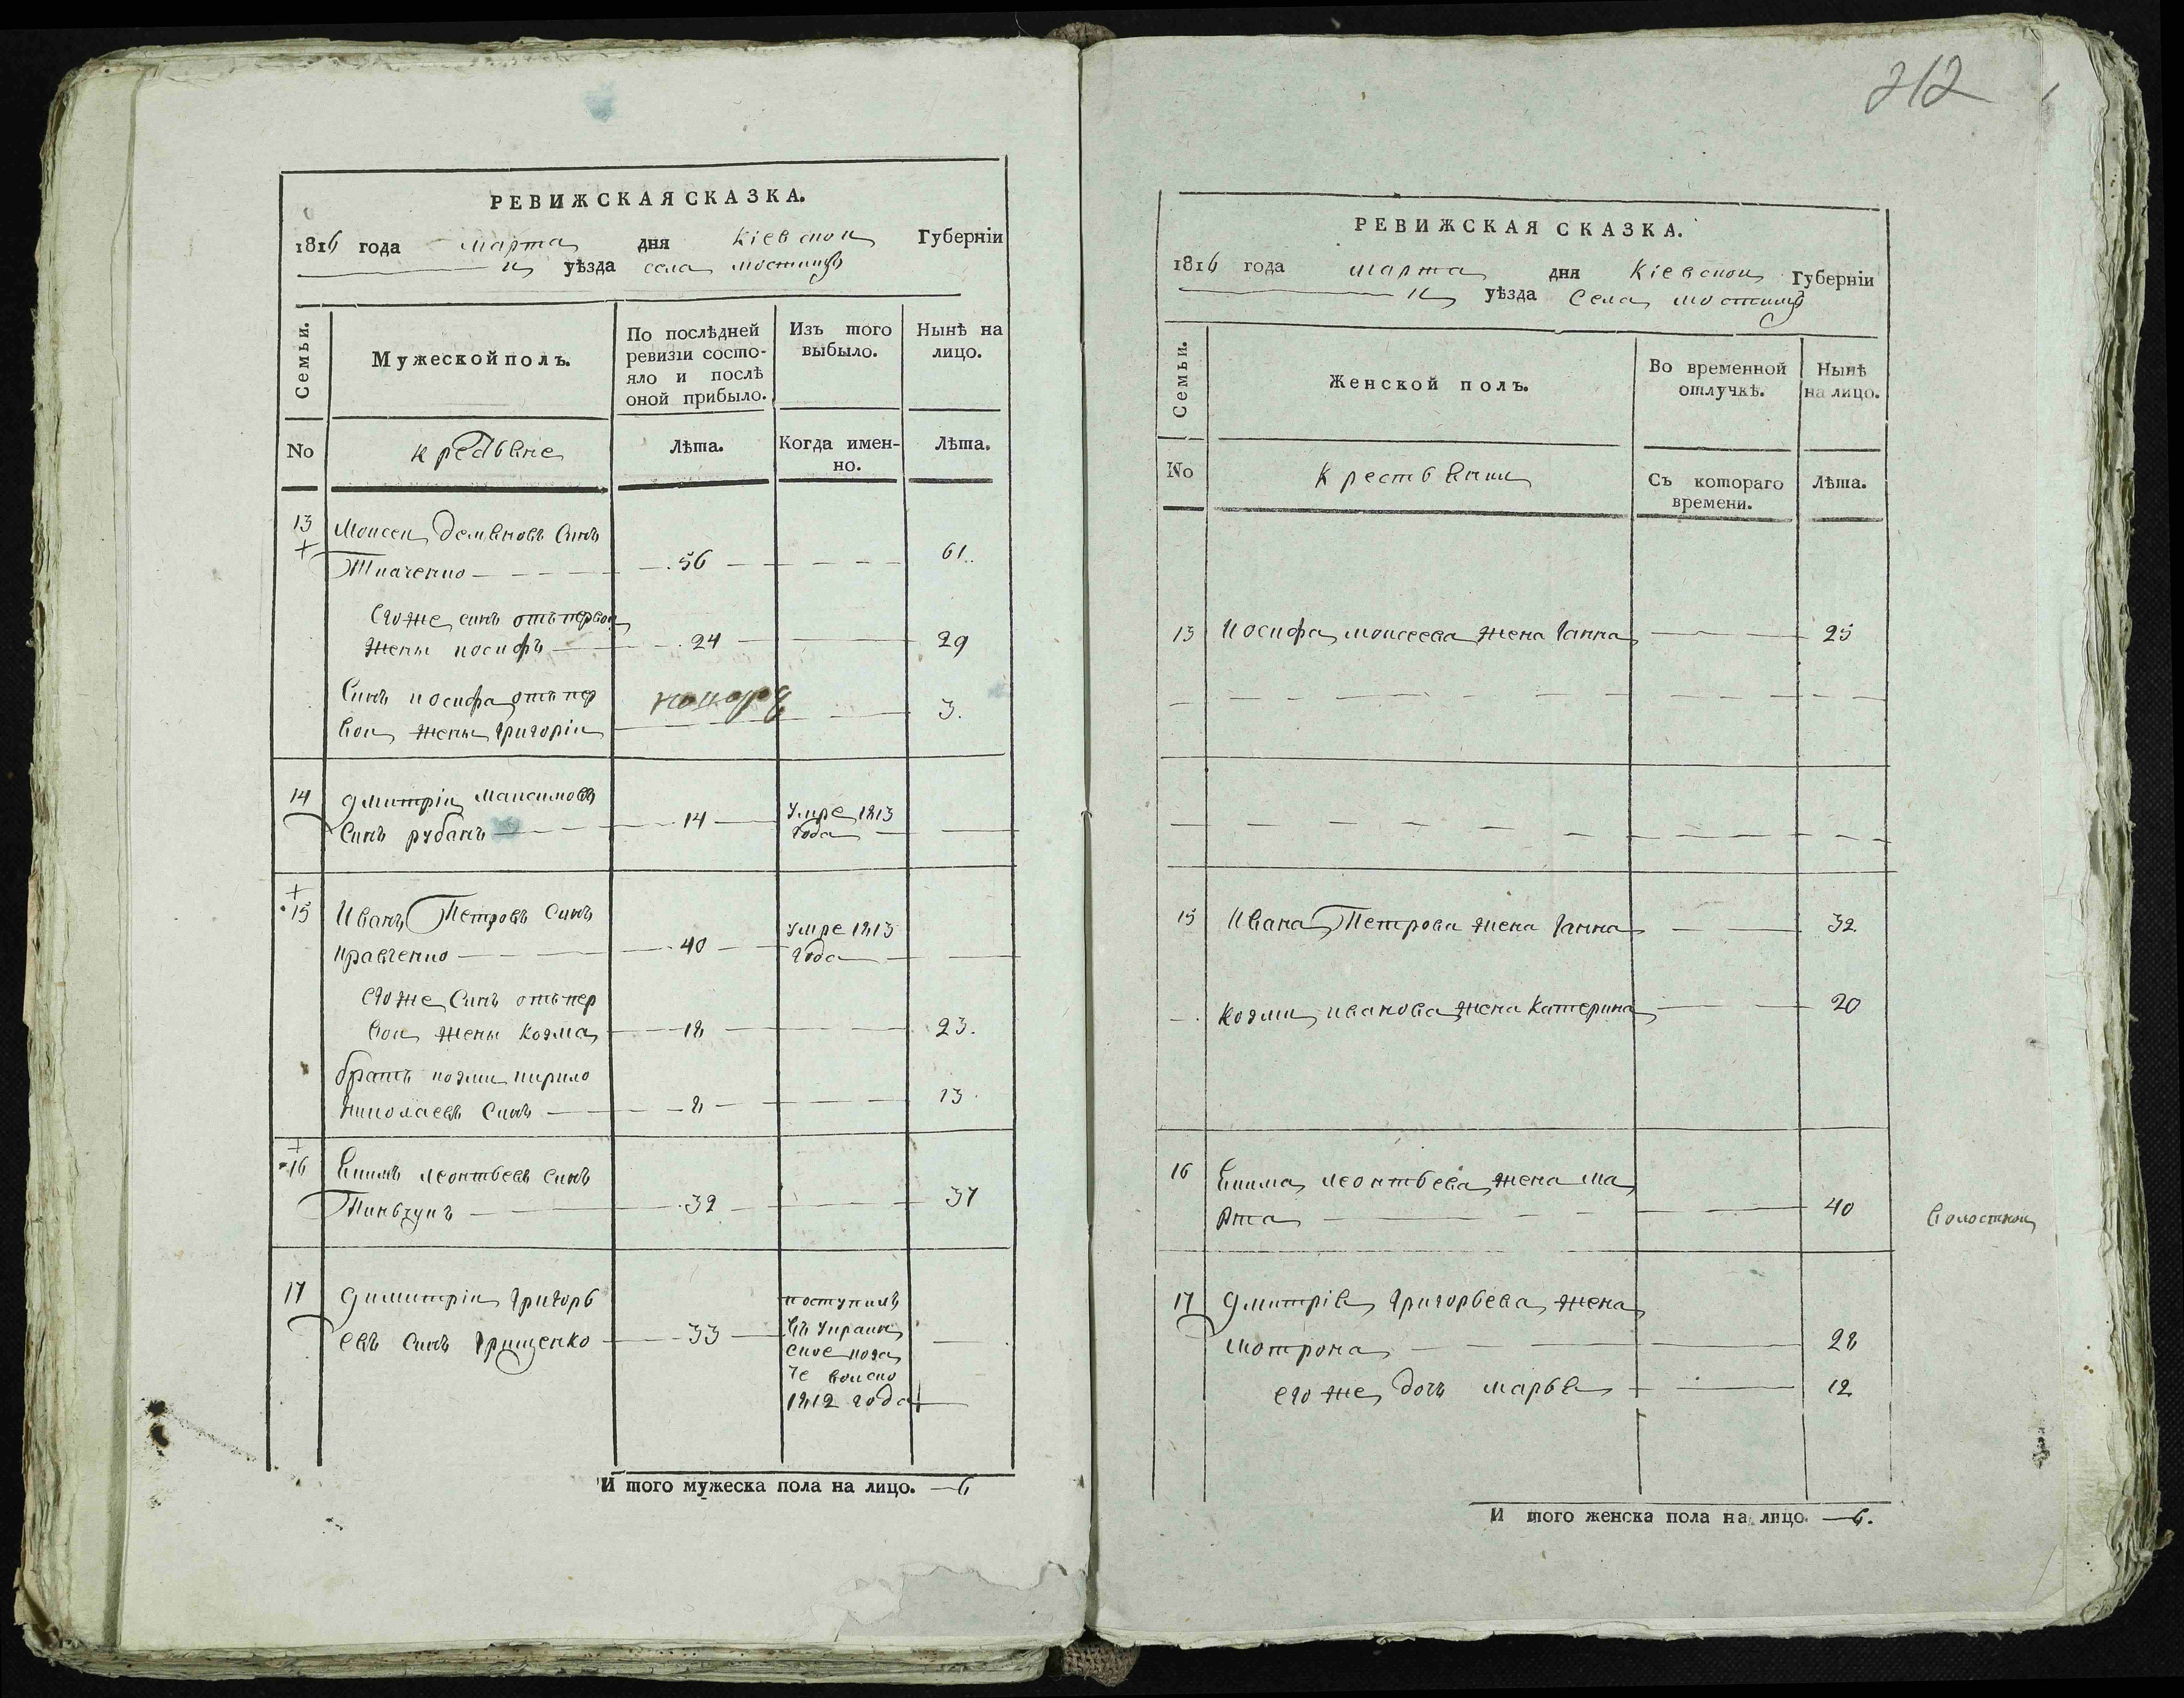 212
РЕВИЖСКАЯ СКАЗКА.
1816 года марта дня Кіевской Губерніи
уѣзда села мостищъ
Семьи.
Мужеской полъ.
По послѣдней ревизіи состояло и послѣ оной прибыло.
Изъ того выбыло.
Нынѣ на лицо.
No
Лѣта.
Когда именно.
Лѣта.
13 Моисей Демяновъ Синъ
Ткаченко 56 61
Его же синъ отъ первой
жены иосифъ 24 29
Синъ иосифа отъ пер
вой жены григорій новорд 3.
14 Дмитрій Максимовъ
Синъ рубанъ 14 Умре 1813 года
15 Иванъ Петровъ Синъ
кравченко 40 умре 1813 года
его же Синъ отъ пер
вой жены козма 18 23.
братъ козми кирило
николаевъ Синъ 8 13.
16 Екимъ леонтьевъ синъ
32 37
17 Димитрій григорь
евъ Синъ грищенко 33 поступилъ
въ украин
ское коза
че войско
1812 года
И того мужеска пола на лицо. 6
РЕВИЖСКАЯ СКАЗКА.
1816 года марта дня Кіевской Губерніи
уѣзда Села мостищъ
Семьи.
Женской полъ.
Во временной отлучкѣ.
Нынѣ на лицо.
No
Крестьянки
Съ котораго времени.
Лѣта.
13 Иосифа моисеева жена Ганна 25
15 Ивана Петрова жена Ганна 32
Козми иванова жена Катерина 20
16 Екима леонтьева жена ма
рта 40
17 Дмитрія григорьева жена
мотрона 28
его же дочь марья 12
И того женска пола на лицо. 6.